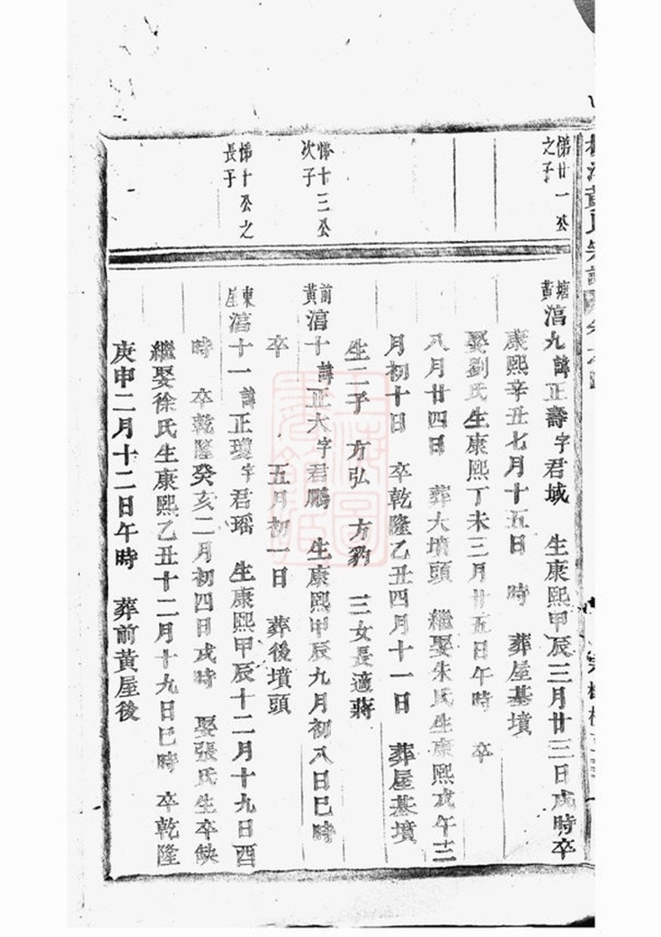 黃氏宗譜
悌廿一公
之子
塘黃
澝九諱正壽字君域 生康熙甲辰三月廿三日戌時卒
康熙辛丑七月十五日 時 葬屋基墳
娶劉氏生康熙丁未三月廿五日午時 卒
八月廿四日 葬大墳頭 繼娶朱氏生康熙戊午十二
月初十日 卒乾隆乙丑四月十一日 葬屋基墳
生二子 方弘 方豹 三女長適蔣
悌十三公
次子
前黃
澝十諱正大字君鵬 生康熙甲辰九月初八日巳時
卒 五月初一日 葬後墳頭
悌十公之
長子
東
澝十一諱正瓊字君瑶 生康熙甲辰十二月十九日酉
時 卒乾隆癸亥二月初四日戌時 娶張氏生卒缺
繼娶徐氏生康熙乙丑十二月十九日巳時 卒乾隆
庚申二月十二日午時 葬前黃屋後